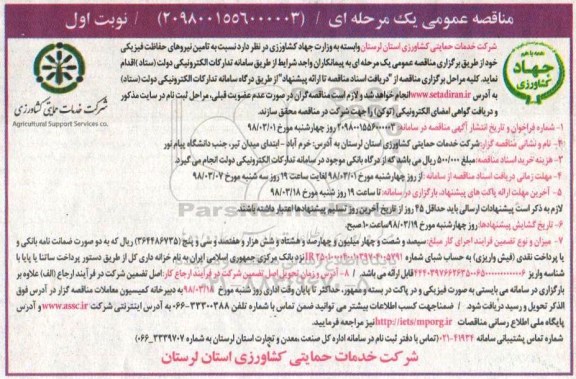 مناقصه عمومی یک مرحله ای / (۲۰۹۸۰۰۱۵۵۶۰۰۰۰۰۳) / نوبت اول
همه با هم
جهاد
کشاورزی
شرکت خدمات حمایتی کشاورزی
Agricultural Support Services co.
شرکت خدمات حمایتی کشاورزی استان لرستان وابسته به وزارت جهاد کشاورزی در نظر دارد نسبت به تامین نیروهای حفاظت فیزیکی
خود از طریق برگزاری مناقصه عمومی یک مرحله ای به پیمانکاران واجد شرایط از طریق سامانه تدارکات الکترونیکی دولت (ستاد) اقدام
نماید. کلیه مراحل برگزاری مناقصه از "دریافت اسناد مناقصه تا ارائه پیشنهاد" از طریق درگاه سامانه تدارکات الکترونیکی دولت (ستاد)
به آدرس www.setadiran.ir انجام خواهد شد و لازم است مناقصه گران در صورت عدم عضویت قبلی، مراحل ثبت نام در سایت مذکور
و دریافت گواهی امضای الکترونیکی (توکن) را جهت شرکت در مناقصه محقق سازند.
۱- شماره فراخوان و تاریخ انتشار آگهی مناقصه در سامانه: ۲۰۹۸۰۰۱۵۵۶۰۰۰۰۰۳ روز چهارشنبه مورخ ۹۸/۰۳/۰۱
۲- نام و نشانی مناقصه گزار: شرکت خدمات حمایتی کشاورزی استان لرستان به آدرس: خرم آباد - ابتدای میدان تیر، جنب دانشگاه پیام نور
۳- هزینه خرید اسناد مناقصه: مبلغ ۵۰۰/۰۰۰ ریال می باشد که از درگاه بانکی موجود در سامانه تدارکات الکترونیکی دولت انجام می گیرد.
۴- مهلت زمانی دریافت اسناد مناقصه از سامانه: از روز چهارشنبه مورخ ۹۸/۰۳/۰۱ لغایت ساعت ۱۹ روز سه شنبه مورخ ۹۸/۰۳/۰۷
۵- آخرین مهلت ارائه پاکت های پیشنهاد، بارگزاری در سامانه: تا ساعت ۱۹ روز شنبه مورخ ۹۸/۰۳/۱۸
لازم به ذکر است پیشنهادات ارسالی باید حداقل ۴۵ روز از تاریخ آخرین روز تسلیم پیشنهادها اعتبار داشته باشند
۶- تاریخ گشایش پیشنهادها: روز چهارشنبه مورخ ۹۸/۰۳/۱۹ ساعت ۱۰ صبح.
۷- میزان و نوع تضمین فرآیند اجرای کار مبلغ: سیصد و شصت و چهار میلیون و چهارصد و هشتاد و شش هزار و هفتصد و سی و پنج (۳۶۴۴۸۶۷۳۵) ریال که به دو صورت ضمانت نامه بانکی و
یا پرداخت نقدی (فیش واریزی) به حساب شبای شماره نزد بانک مرکزی جمهوری اسلامی ایران به نام خزانه داری کل از طریق دستور پرداخت ساتنا یا پایا با
شناسه واریز قابل ارائه می باشد. / ۸- آدرس و زمان تحویل اصل تضمین شرکت در فرآیند ارجاع کار: اصل تضمین شرکت در فرآیند ارجاع (الف) علاوه بر
بارگزاری در سامانه می بایستی به صورت فیزیکی و در پاکت در بسته و ممهور، حداکثر تا پایان وقت اداری روز شنبه مورخ ۹۸/۰۳/۱۸ به دبیرخانه کمیسیون معاملات مناقصه گزار در آدرس فوق
الذکر تحویل و رسید دریافت شود. / ضمنا جهت کسب اطلاعات بیشتر می توانید ضمن تماس با شماره تلفن ۳۳۲۰۰۳۸۸-۰۶۶ به آدرس اینترنتی شرکت www.assc.ir و آدرس
پایگاه ملی اطلاع رسانی مناقصات http://iets/mporg.ir نیز مراجعه فرمایید.
شماره تماس پشتیبانی سامانه ۴۱۹۳۴-۰۲۱ (تماس با دفتر ثبت نام در سامانه اداره کل صنعت، معدن و تجارت به شماره ۳۳۳۹۷۰۷-۰۶۶)
شرکت خدمات حمایتی کشاورزی استان لرستان